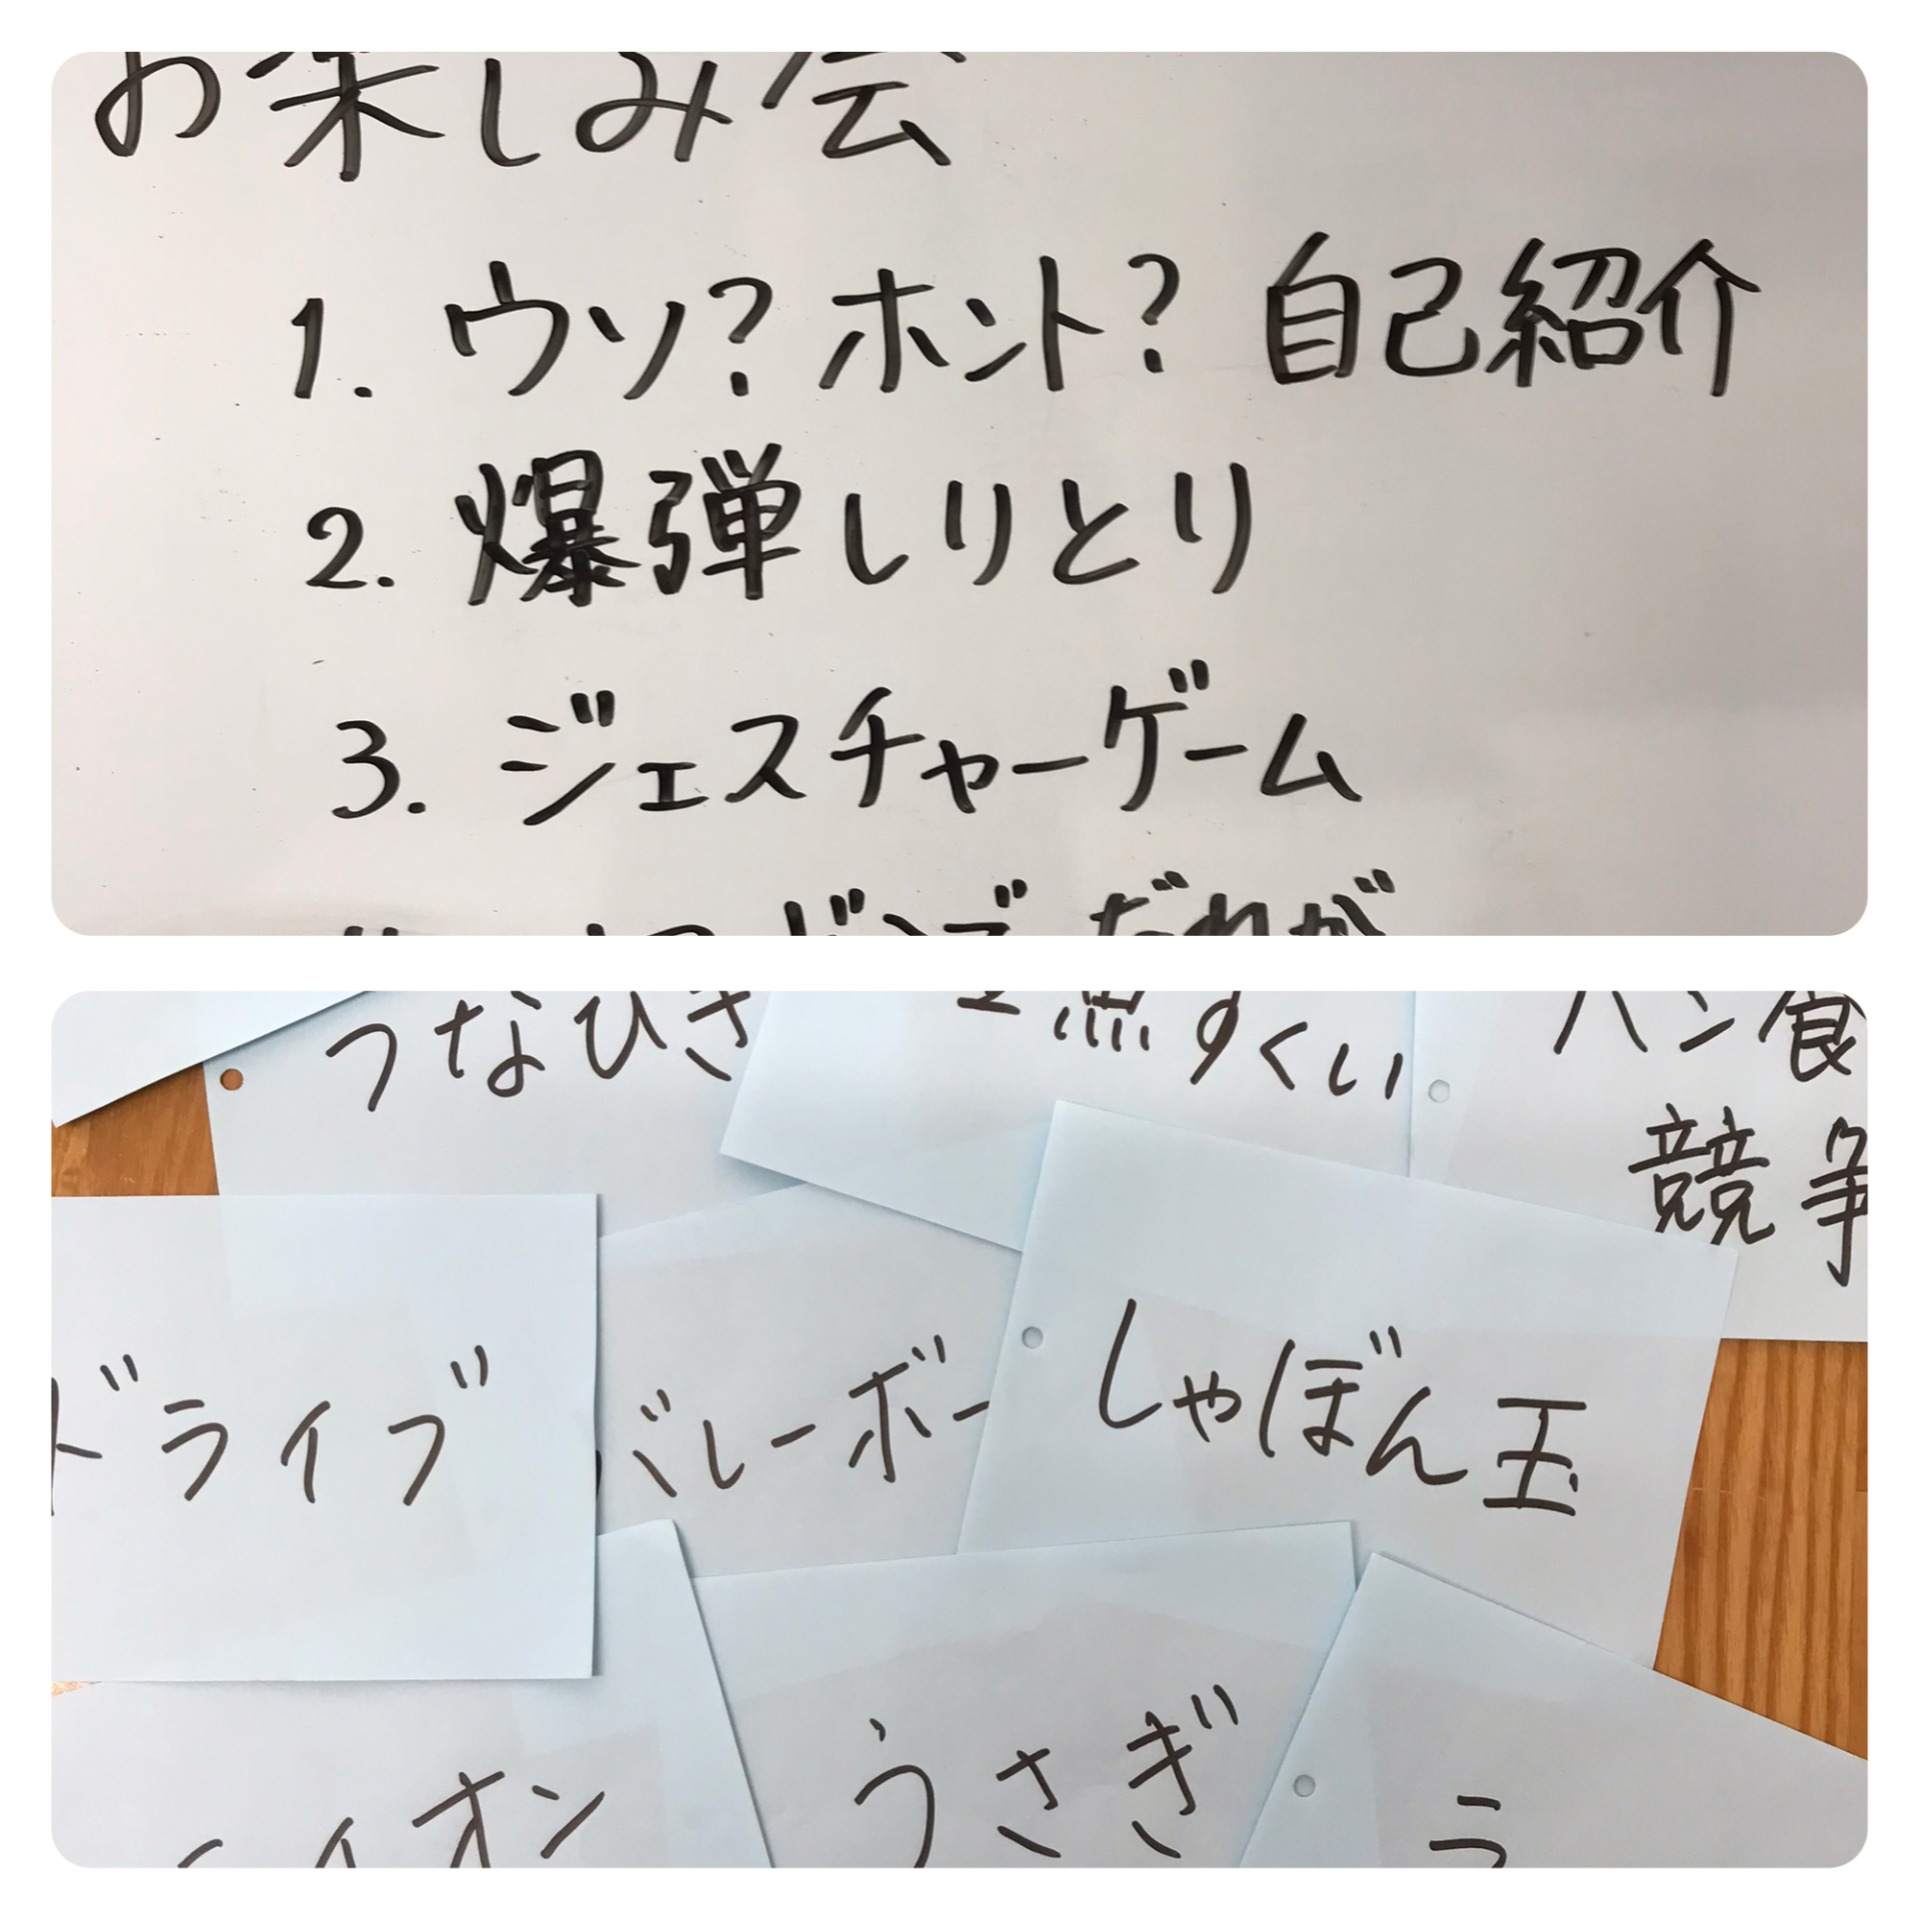 お楽しみ会
1. ウソ?ホント? 自己紹介
2. 爆弾しりとり
3. ジェスチャーゲーム
だれが
つなひき
魚すくい
パン食
競争
ドライブ
バレーボー
しゃぼん玉
イオン
うさぎ